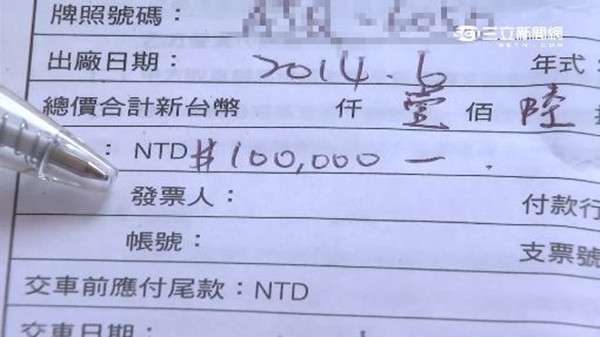 牌照號碼：
三立新聞網
SETN.COM
出廠日期： 2014.6 年式
總價合計新台幣 仟 壹 佰 陸
： NTD $100,000 一
發票人： 付款行
帳號： 支票號
交車前應付尾款：NTD
交車日期：